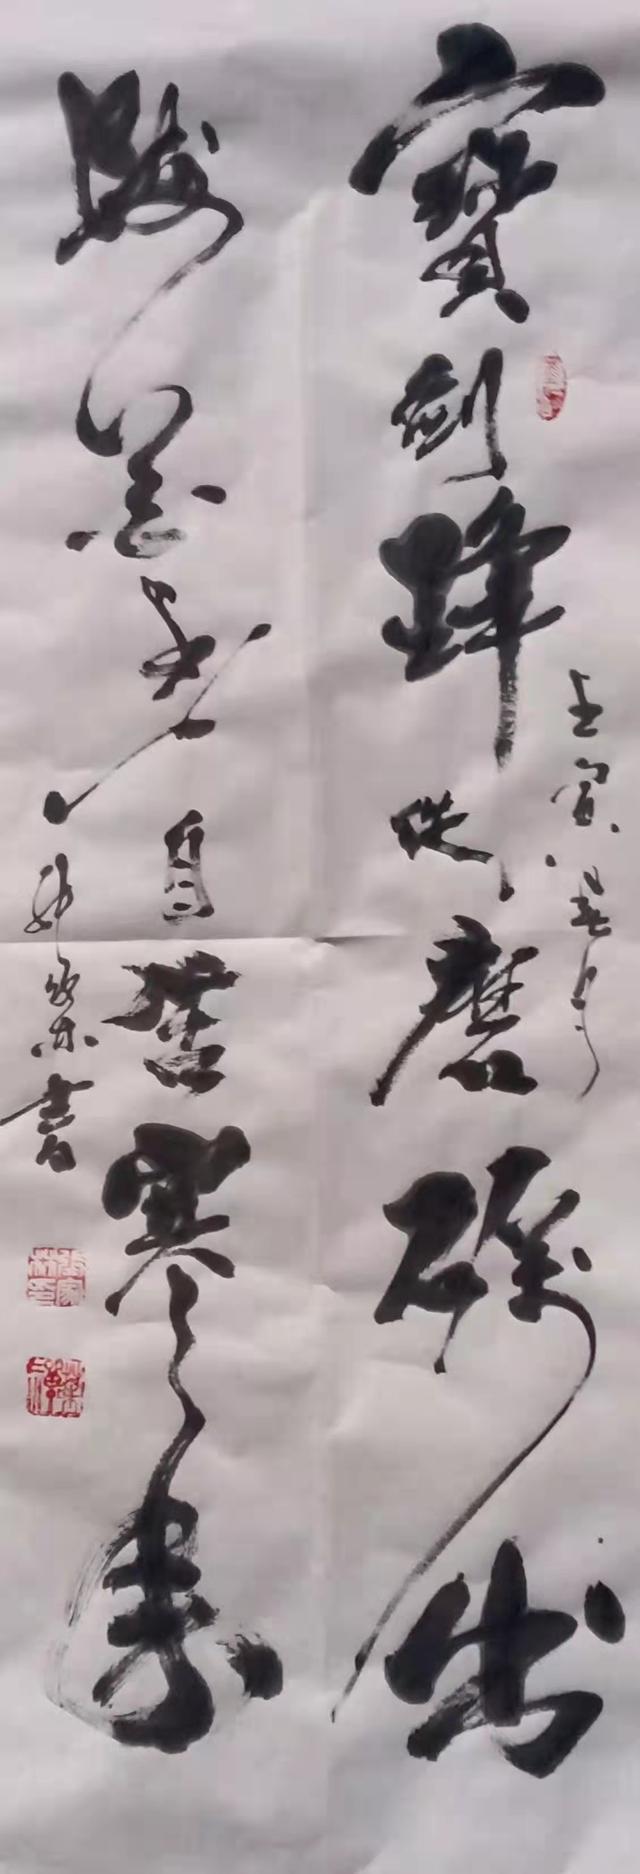 壬寅春月
寶劍鋒從磨礪出
梅花香自苦寒來
張家林書